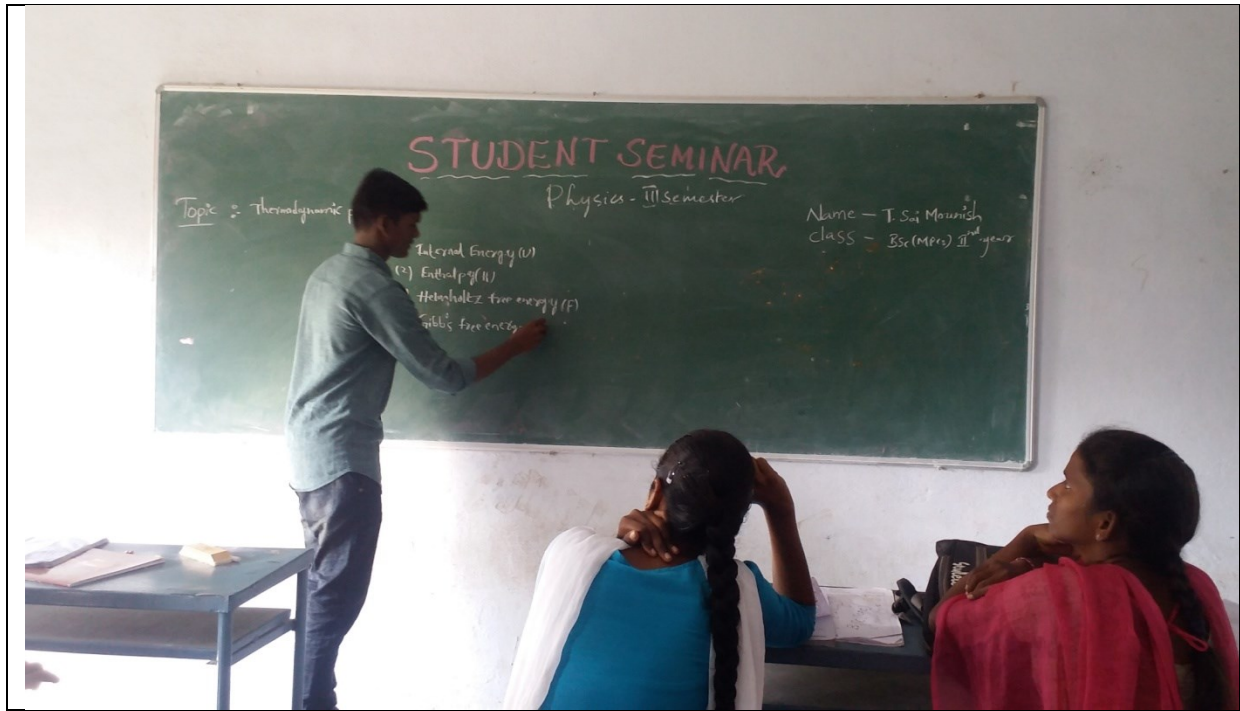 STUDENT SEMINAR
Physics - III semester
Topic : Thermodynamic
Name - T. Sai Mounish
class - BSc (MPCs) IInd year
Internal Energy (U)
(2) Enthalpy (H)
Helmholtz free energy (F)
Gibb's free energy